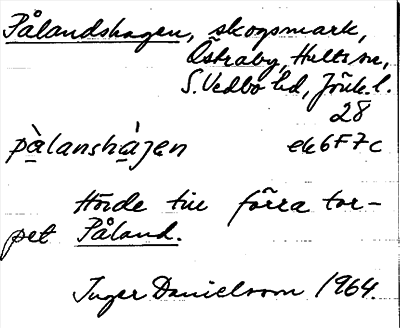 Pålandshagen, skogsmark,
Östraby, Hults sn,
S. Vedbo hd, Jönk. l.
28
pàlanshàgen ek 6F7c
Hörde till förra tor-
pet Påland.
Inger Danielsson 1964.